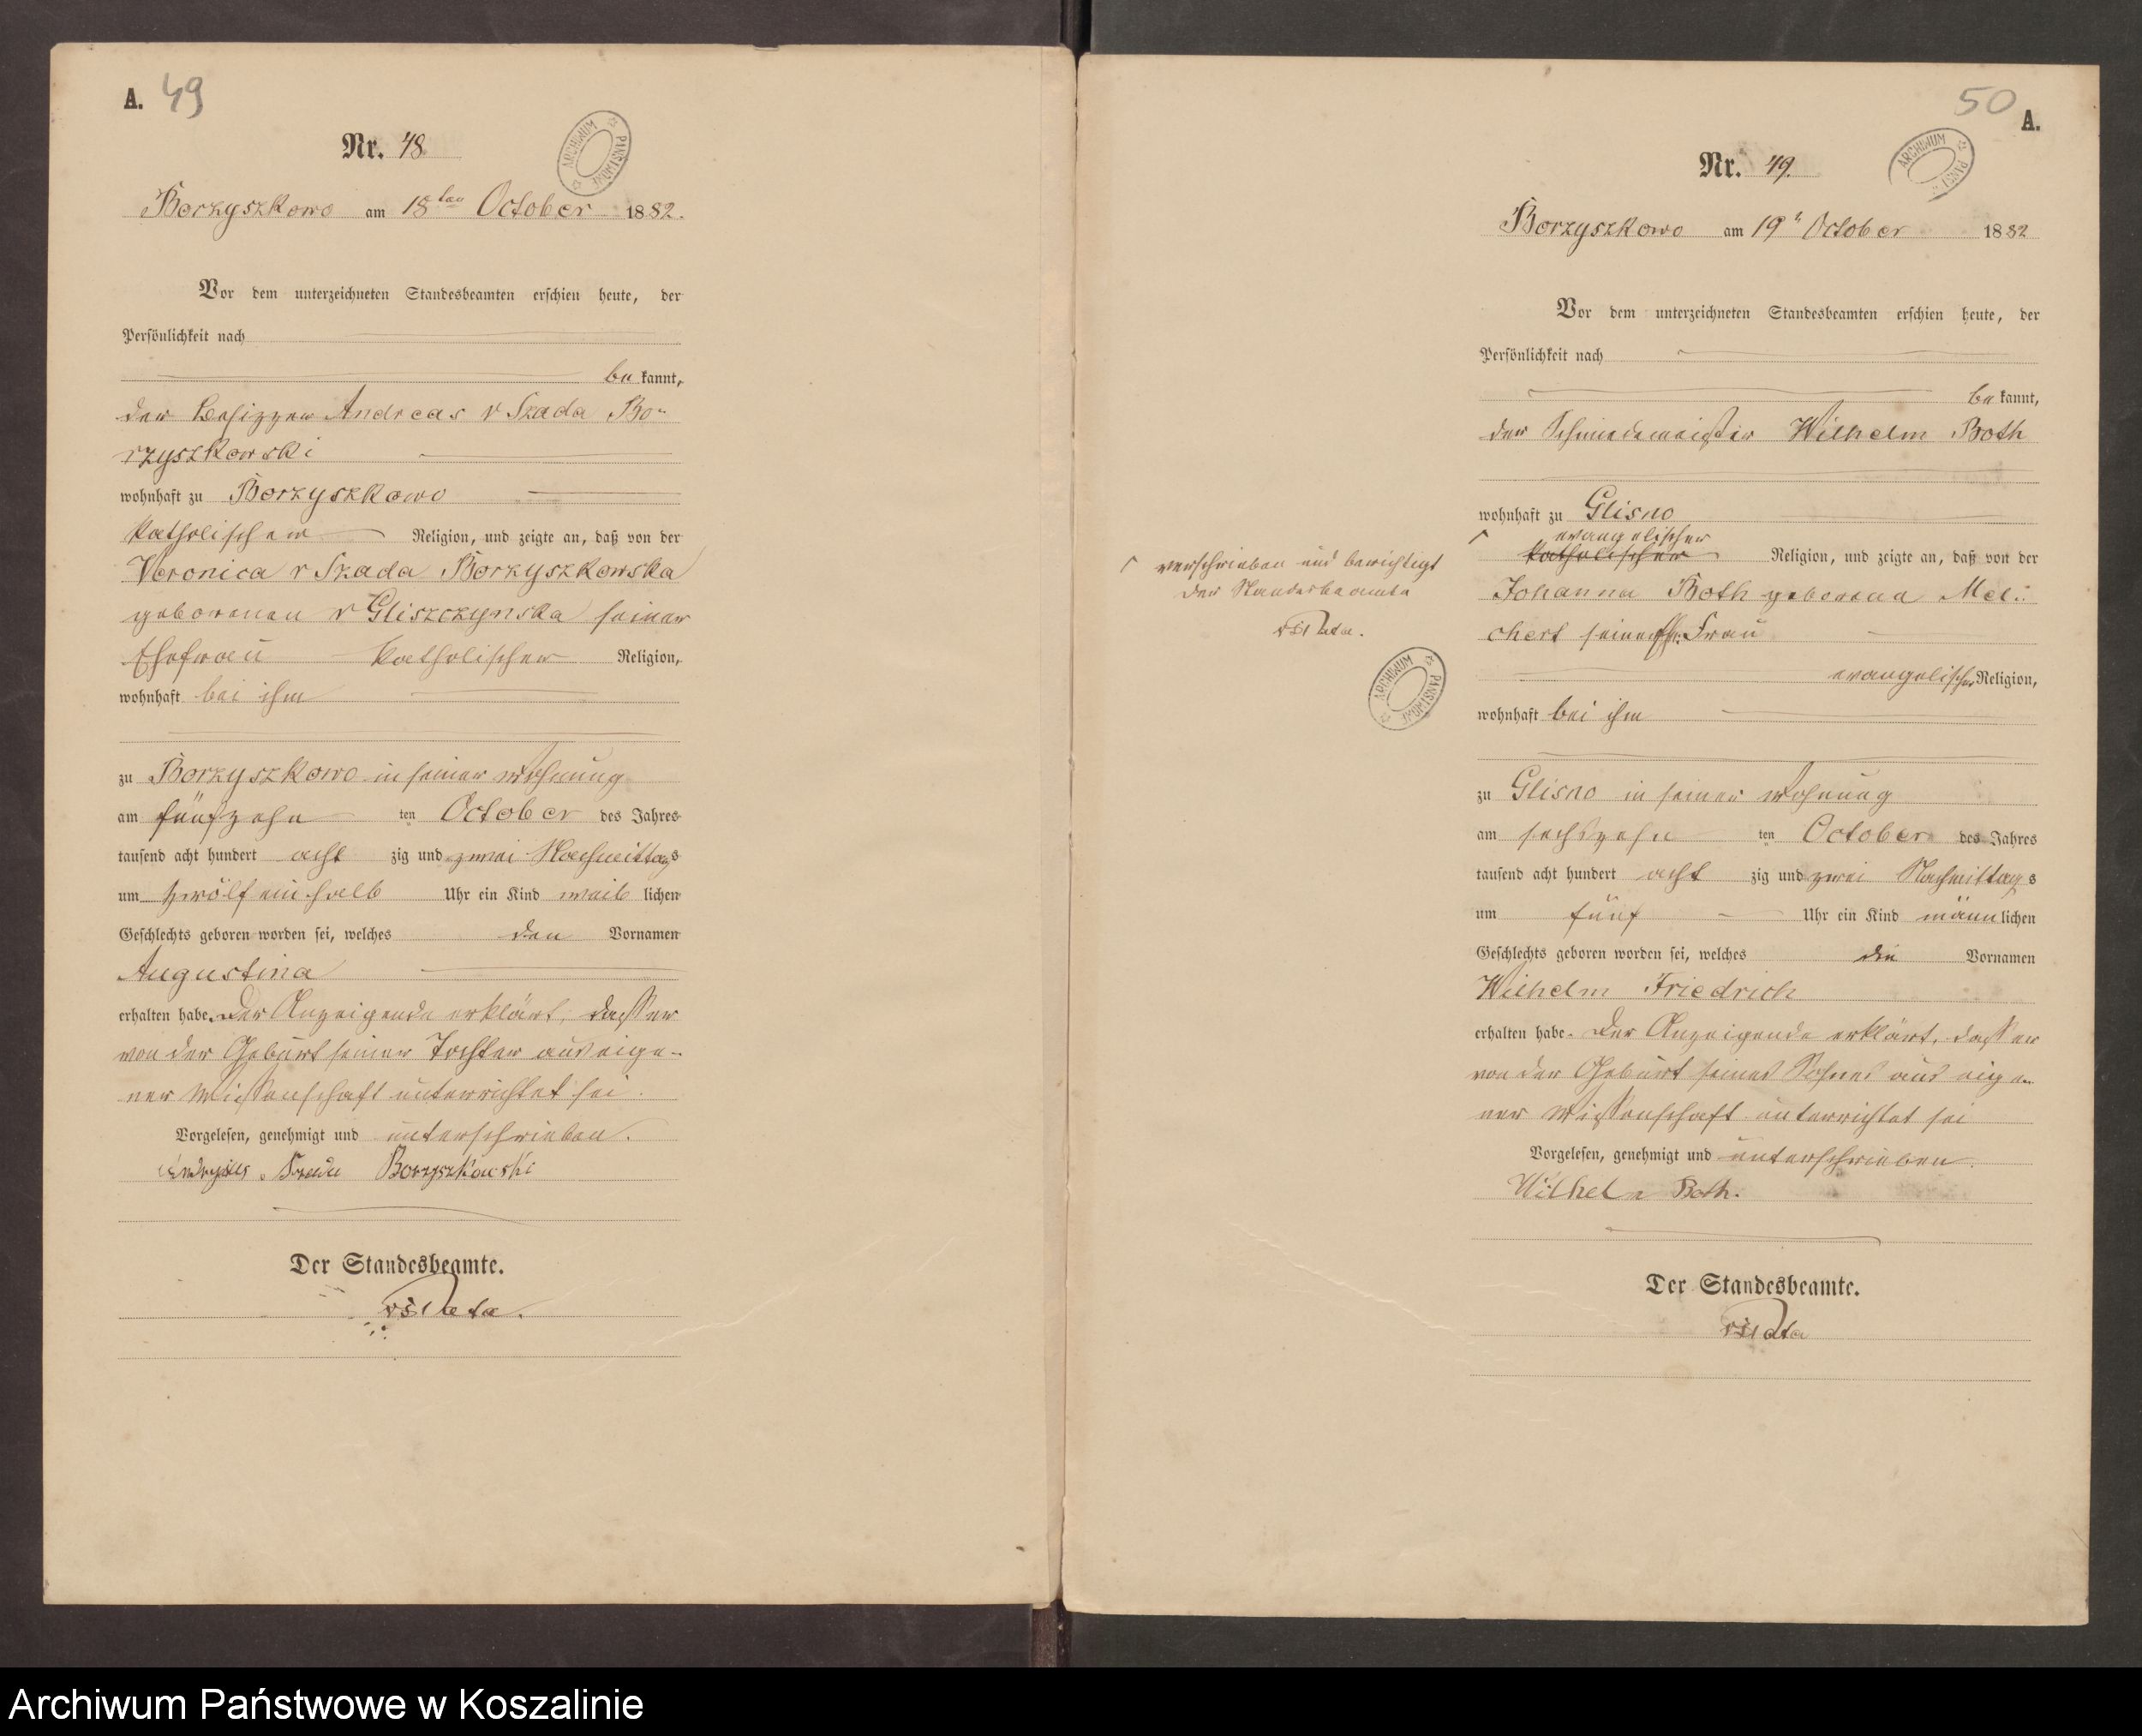 A. 49
Nr. 48
ARCHIWUM PAŃSTWOWE
Borzyszkowo am 18ten October 1882.
Vor dem unterzeichneten Standesbeamten erschien heute, der
Persönlichkeit nach
be kannt,
der Besitzer Andreas v Szada Bo-
rzyszkowski
wohnhaft zu Borzyszkowo
katholischer Religion, und zeigte an, daß von der
Veronica v Szada Borzyszkowska
geborenen v Gliszczynska seiner
Ehefrau katholischer Religion,
wohnhaft bei ihm
zu Borzyszkowo in seiner Wohnung
am fünfzehn ten October des Jahres
tausend acht hundert acht zig und zwei Nachmittags
um zwölf ein halb Uhr ein Kind weib lichen
Geschlechts geboren worden sei, welches den Vornamen
Augustina
erhalten habe. Der Anzeigende erklärt, dass er
von der Geburt seiner Tochter aus eige-
ner Wissenschaft unterrichtet sei.
Vorgelesen, genehmigt und unterschrieben.
Borzyszkowski
Der Standesbeamte.
50 A.
Nr. 49.
ARCHIWUM PAŃST
Borzyszkowo am 19t October 1882
Vor dem unterzeichneten Standesbeamten erschien heute, der
Persönlichkeit nach
be kannt,
der Schmiedemeister Wilhelm Both
wohnhaft zu Glisno
evangelischer
katholischer Religion, und zeigte an, daß von der
Johanna Both geborene Mel-
chert seiner Ehe Frau
evangelischer Religion,
wohnhaft bei ihm
zu Glisno in seiner Wohnung
am sechszehn ten October des Jahres
tausend acht hundert acht zig und zwei Nachmittag s
um fünf Uhr ein Kind männ lichen
Geschlechts geboren worden sei, welches die Vornamen
Wilhelm Friedrich
erhalten habe. Der Anzeigende erklärt, dass er
von der Geburt seines Sohnes aus eige-
ner Wissenschaft unterrichtet sei
Vorgelesen, genehmigt und unterschrieben.
Wilhelm Both.
Der Standesbeamte.
verschrieben und berichtigt
der Standesbeamte
ARCHIWUM PAŃSTWOWE
Archiwum Państwowe w Koszalinie